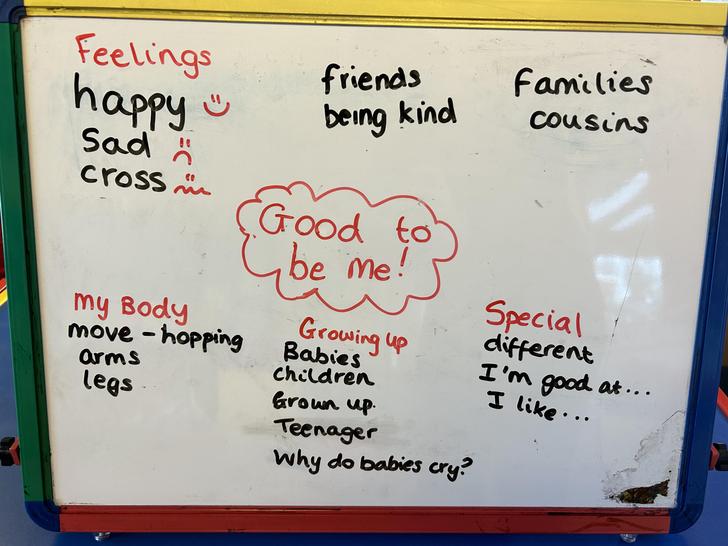 Feelings
happy
Sad
cross
friends
being kind
Families
cousins
Good to
be me!
My Body
move - hopping
arms
legs
Growing up
Babies
children
Grown up.
Teenager
Why do babies cry?
Special
different
I'm good at...
I like...